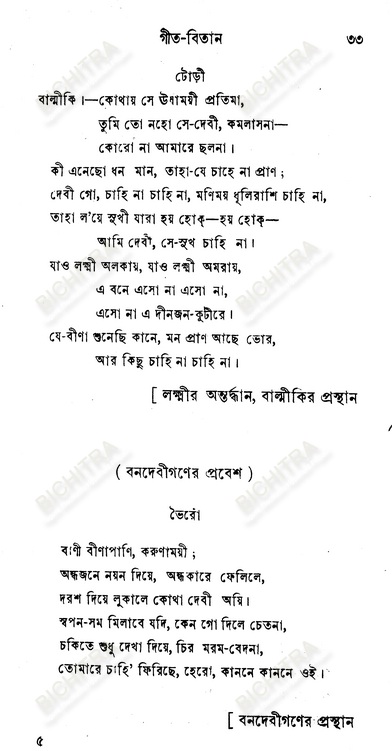 গীত-বিতান ৩৩
টোড়ী
বাল্মীকি।—কোথায় সে উষাময়ী প্রতিমা,
তুমি তো নহো সে-দেবী, কমলাসনা—
কোরো না আমারে ছলনা।
কী এনেছো ধন মান, তাহা-যে চাহে না প্রাণ;
দেবী গো, চাহি না চাহি না, মণিময় ধূলিরাশি চাহি না,
তাহা ল'য়ে সুখী যারা হয় হোক্—হয় হোক্—
আমি দেবী, সে-সুখ চাহি না।
যাও লক্ষ্মী অলকায়, যাও লক্ষ্মী অমরায়,
এ বনে এসো না এসো না,
এসো না এ দীনজন-কুটীরে।
যে-বীণা শুনেছি কানে, মন প্রাণ আছে ভোর,
আর কিছু চাহি না চাহি না।
[ লক্ষ্মীর অন্তর্দ্ধান, বাল্মীকির প্রস্থান
( বনদেবীগণের প্রবেশ )
ভৈরোঁ
বাণী বীণাপাণি, করুণাময়ী;
অন্ধজনে নয়ন দিয়ে, অন্ধকারে ফেলিলে,
দরশ দিয়ে লুকালে কোথা দেবী অয়ি।
স্বপন-সম মিলাবে যদি, কেন গো দিলে চেতনা,
চকিতে শুধু দেখা দিয়ে, চির মরম-বেদনা,
তোমারে চাহি' ফিরিছে, হেরো, কাননে কাননে ওই।
[ বনদেবীগণের প্রস্থান
৫
BICHITRA
BICHITRA
BICHITRA
BICHITRA
BICHITRA
BICHITRA
BICHITRA
BICHITRA